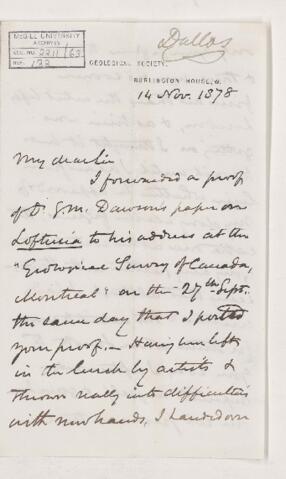 McGILL UNIVERSITY
ARCHIVES
ACC. NO. 2211/63
REF. 122
Dallas
GEOLOGICAL SOCIETY,
BURLINGTON HOUSE, W.
14 Nov. 1878
My dear Sir
I forwarded a proof
of Dr G. M. Dawson's paper on
Loftusia to his address at the
"Geological Survey of Canada,
Montreal" on the 27th Sept.
the same day that I posted
your proof. – Having been left
in the lurch by artists &
thrown really into difficulties
with new hands, I handed over